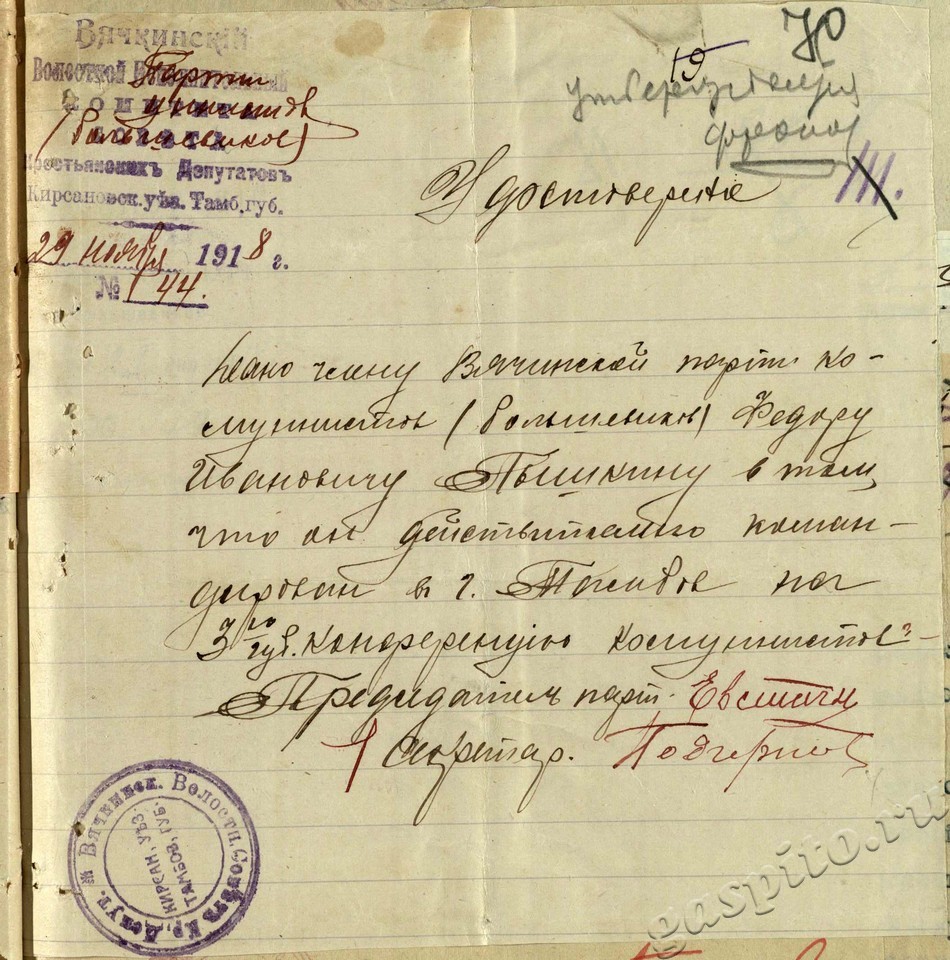 Вячкинскій
Волостной
Партии
Комитетъ
коммунистов
(большевиков)
Крестьянскихъ Депутатовъ
Кирсановск. уѣз. Тамб. губ.
29 ноября 1918 г.
№ 144.
70
19
III.
Удостоверение
Дано члену Вячкинской парт. ко-
мунистов (большевиков) Федору
Ивановичу Пышкину в том,
что он действительно коман-
дирован в г. Тамбов на
3ю губ. конференцию комунистов
Председатель парт.
Секретар.
Вячкинск. Волостн. Совѣтъ Кр. Депут.
Кирсан. уѣз.
Тамбов. губ.
gaspito.ru